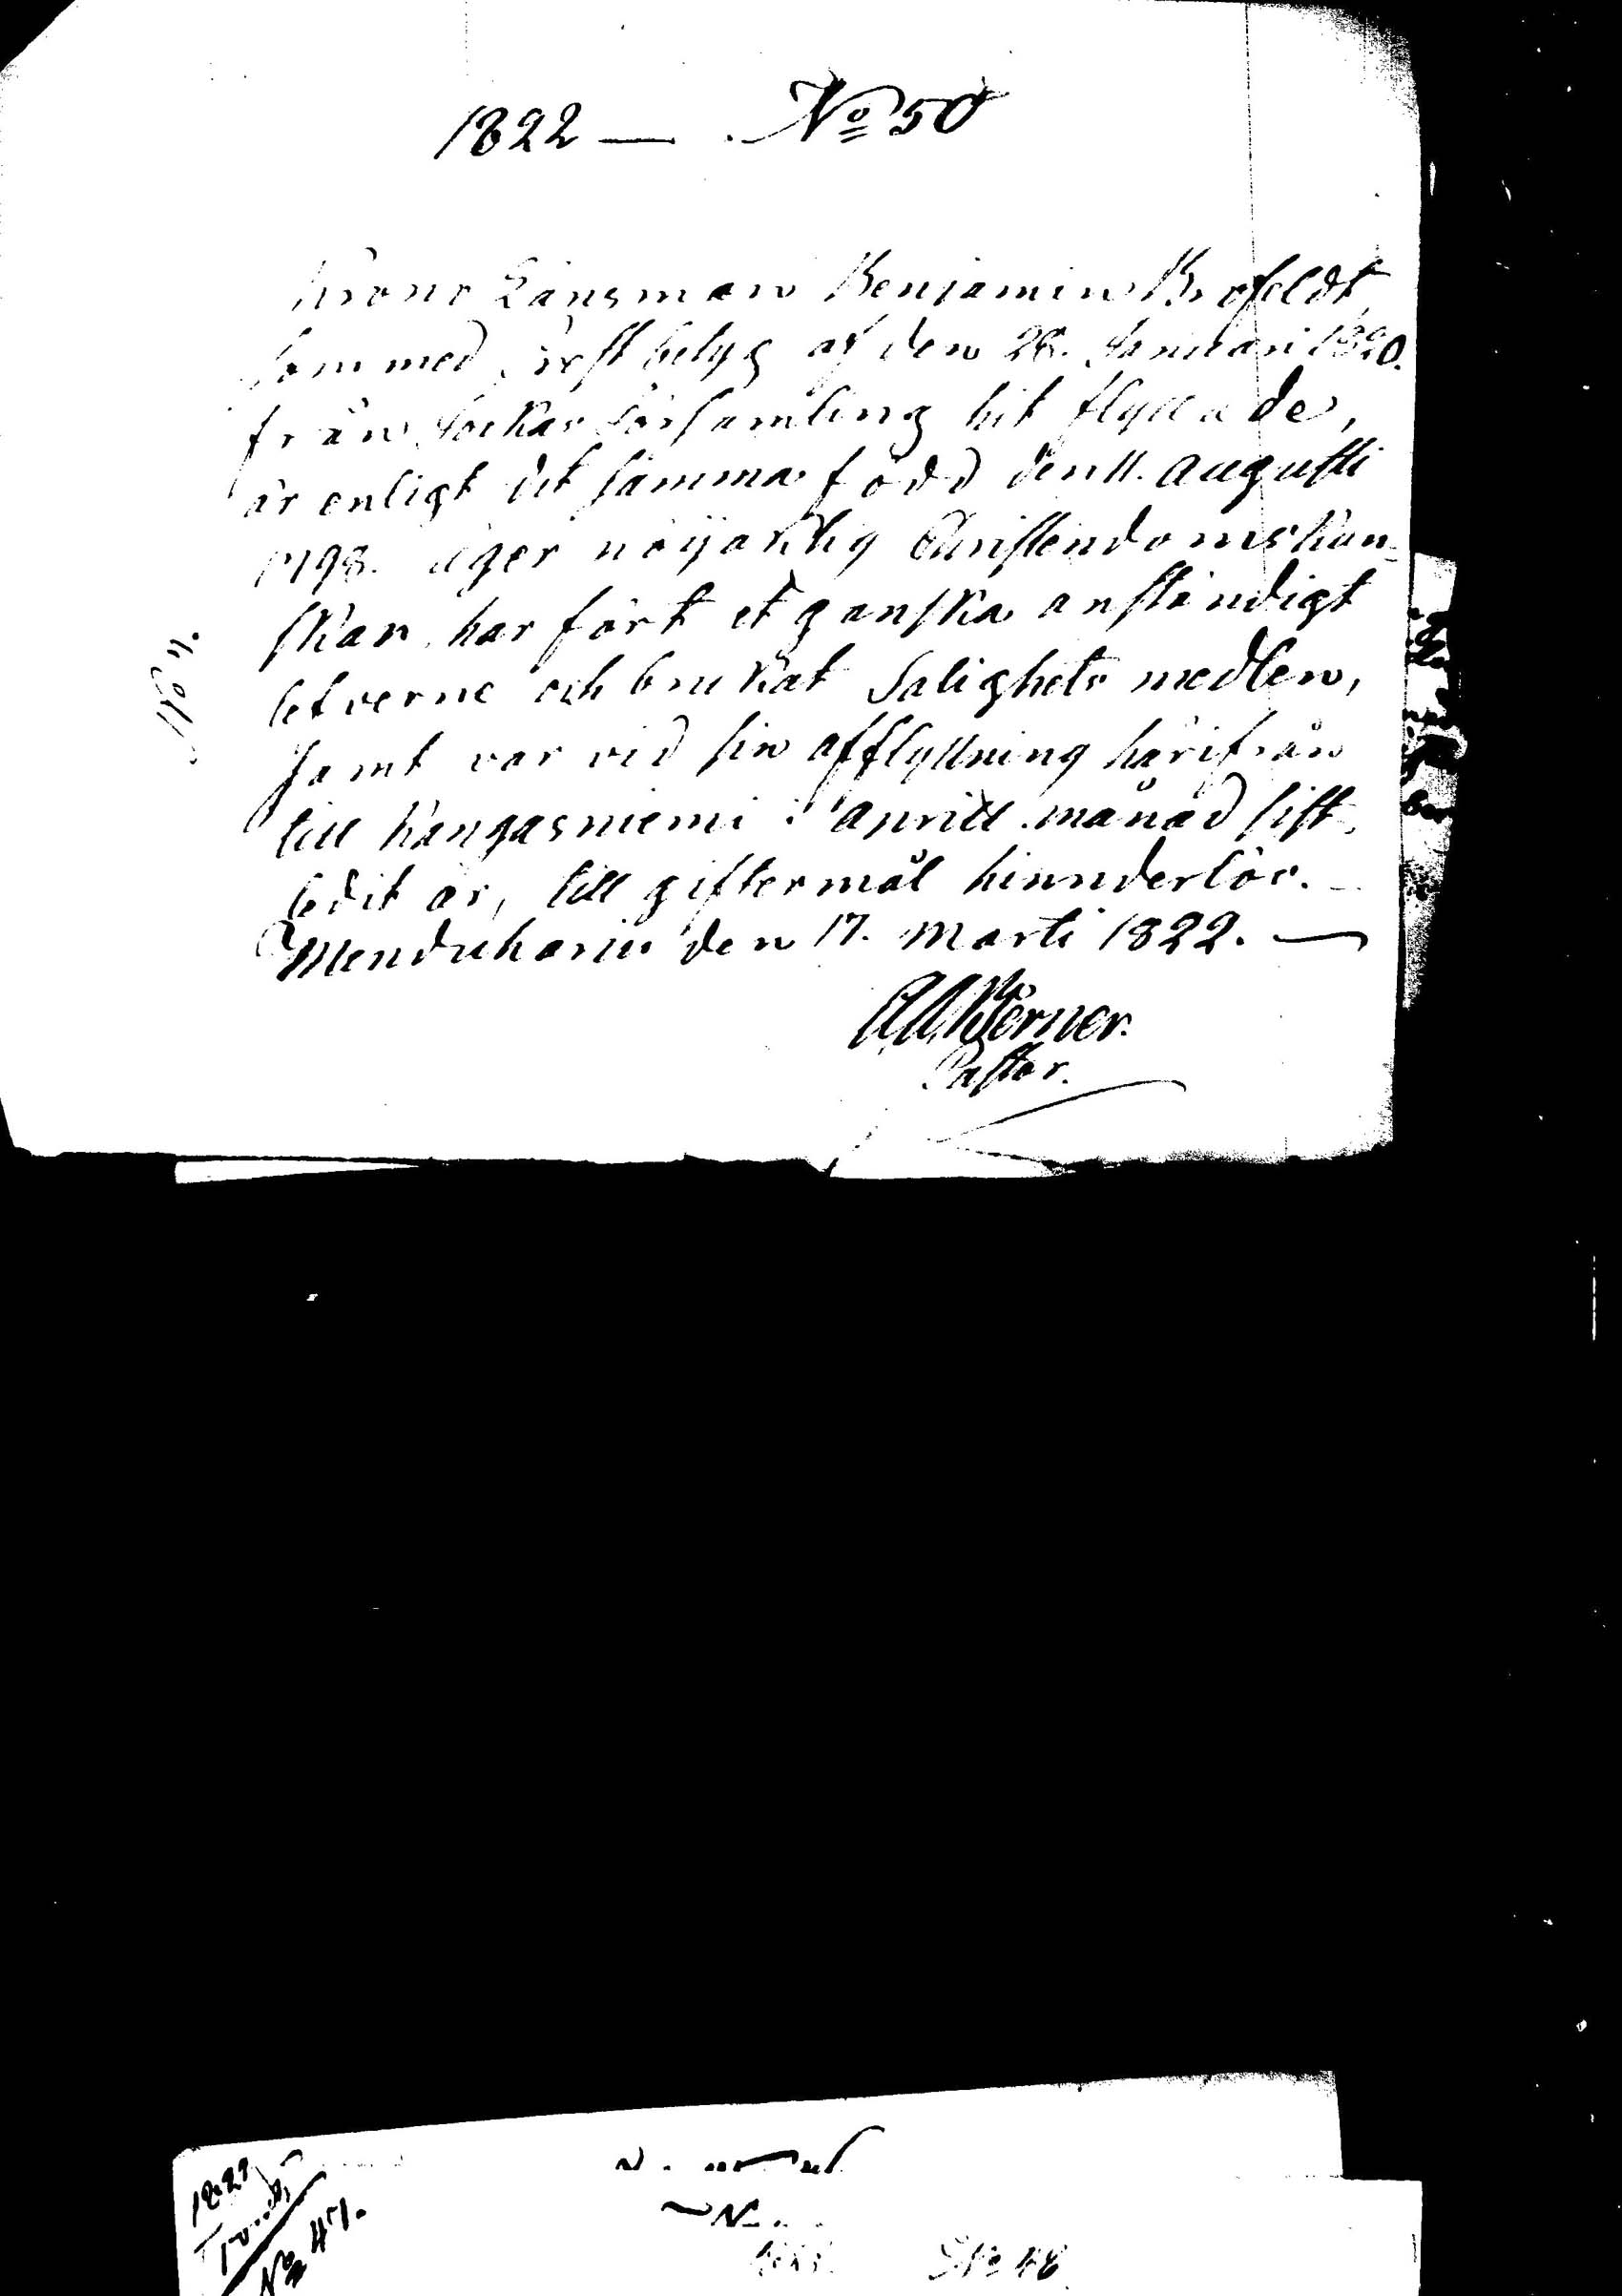 1822 — No 50
Krono Länsman Benjamin Brofeldt,
som med Prest betyg af den 28. Januari 1820.
från Jockas Församling hit flyttade,
är enligt det samma född den 11. Augusti
1798. äger nöijaktig Christendomskun-
skap, har fört et ganska anständigt
lefverne och brukat Salighets medlen,
samt var vid sin afflyttning härifrån
till Kangasniemi i April månad sist-
ledit år, till giftermål hinnderlös. —
Menduharju den 17. Marti 1822. —
Werner.
Pastor.
1822
No 47.
No 48